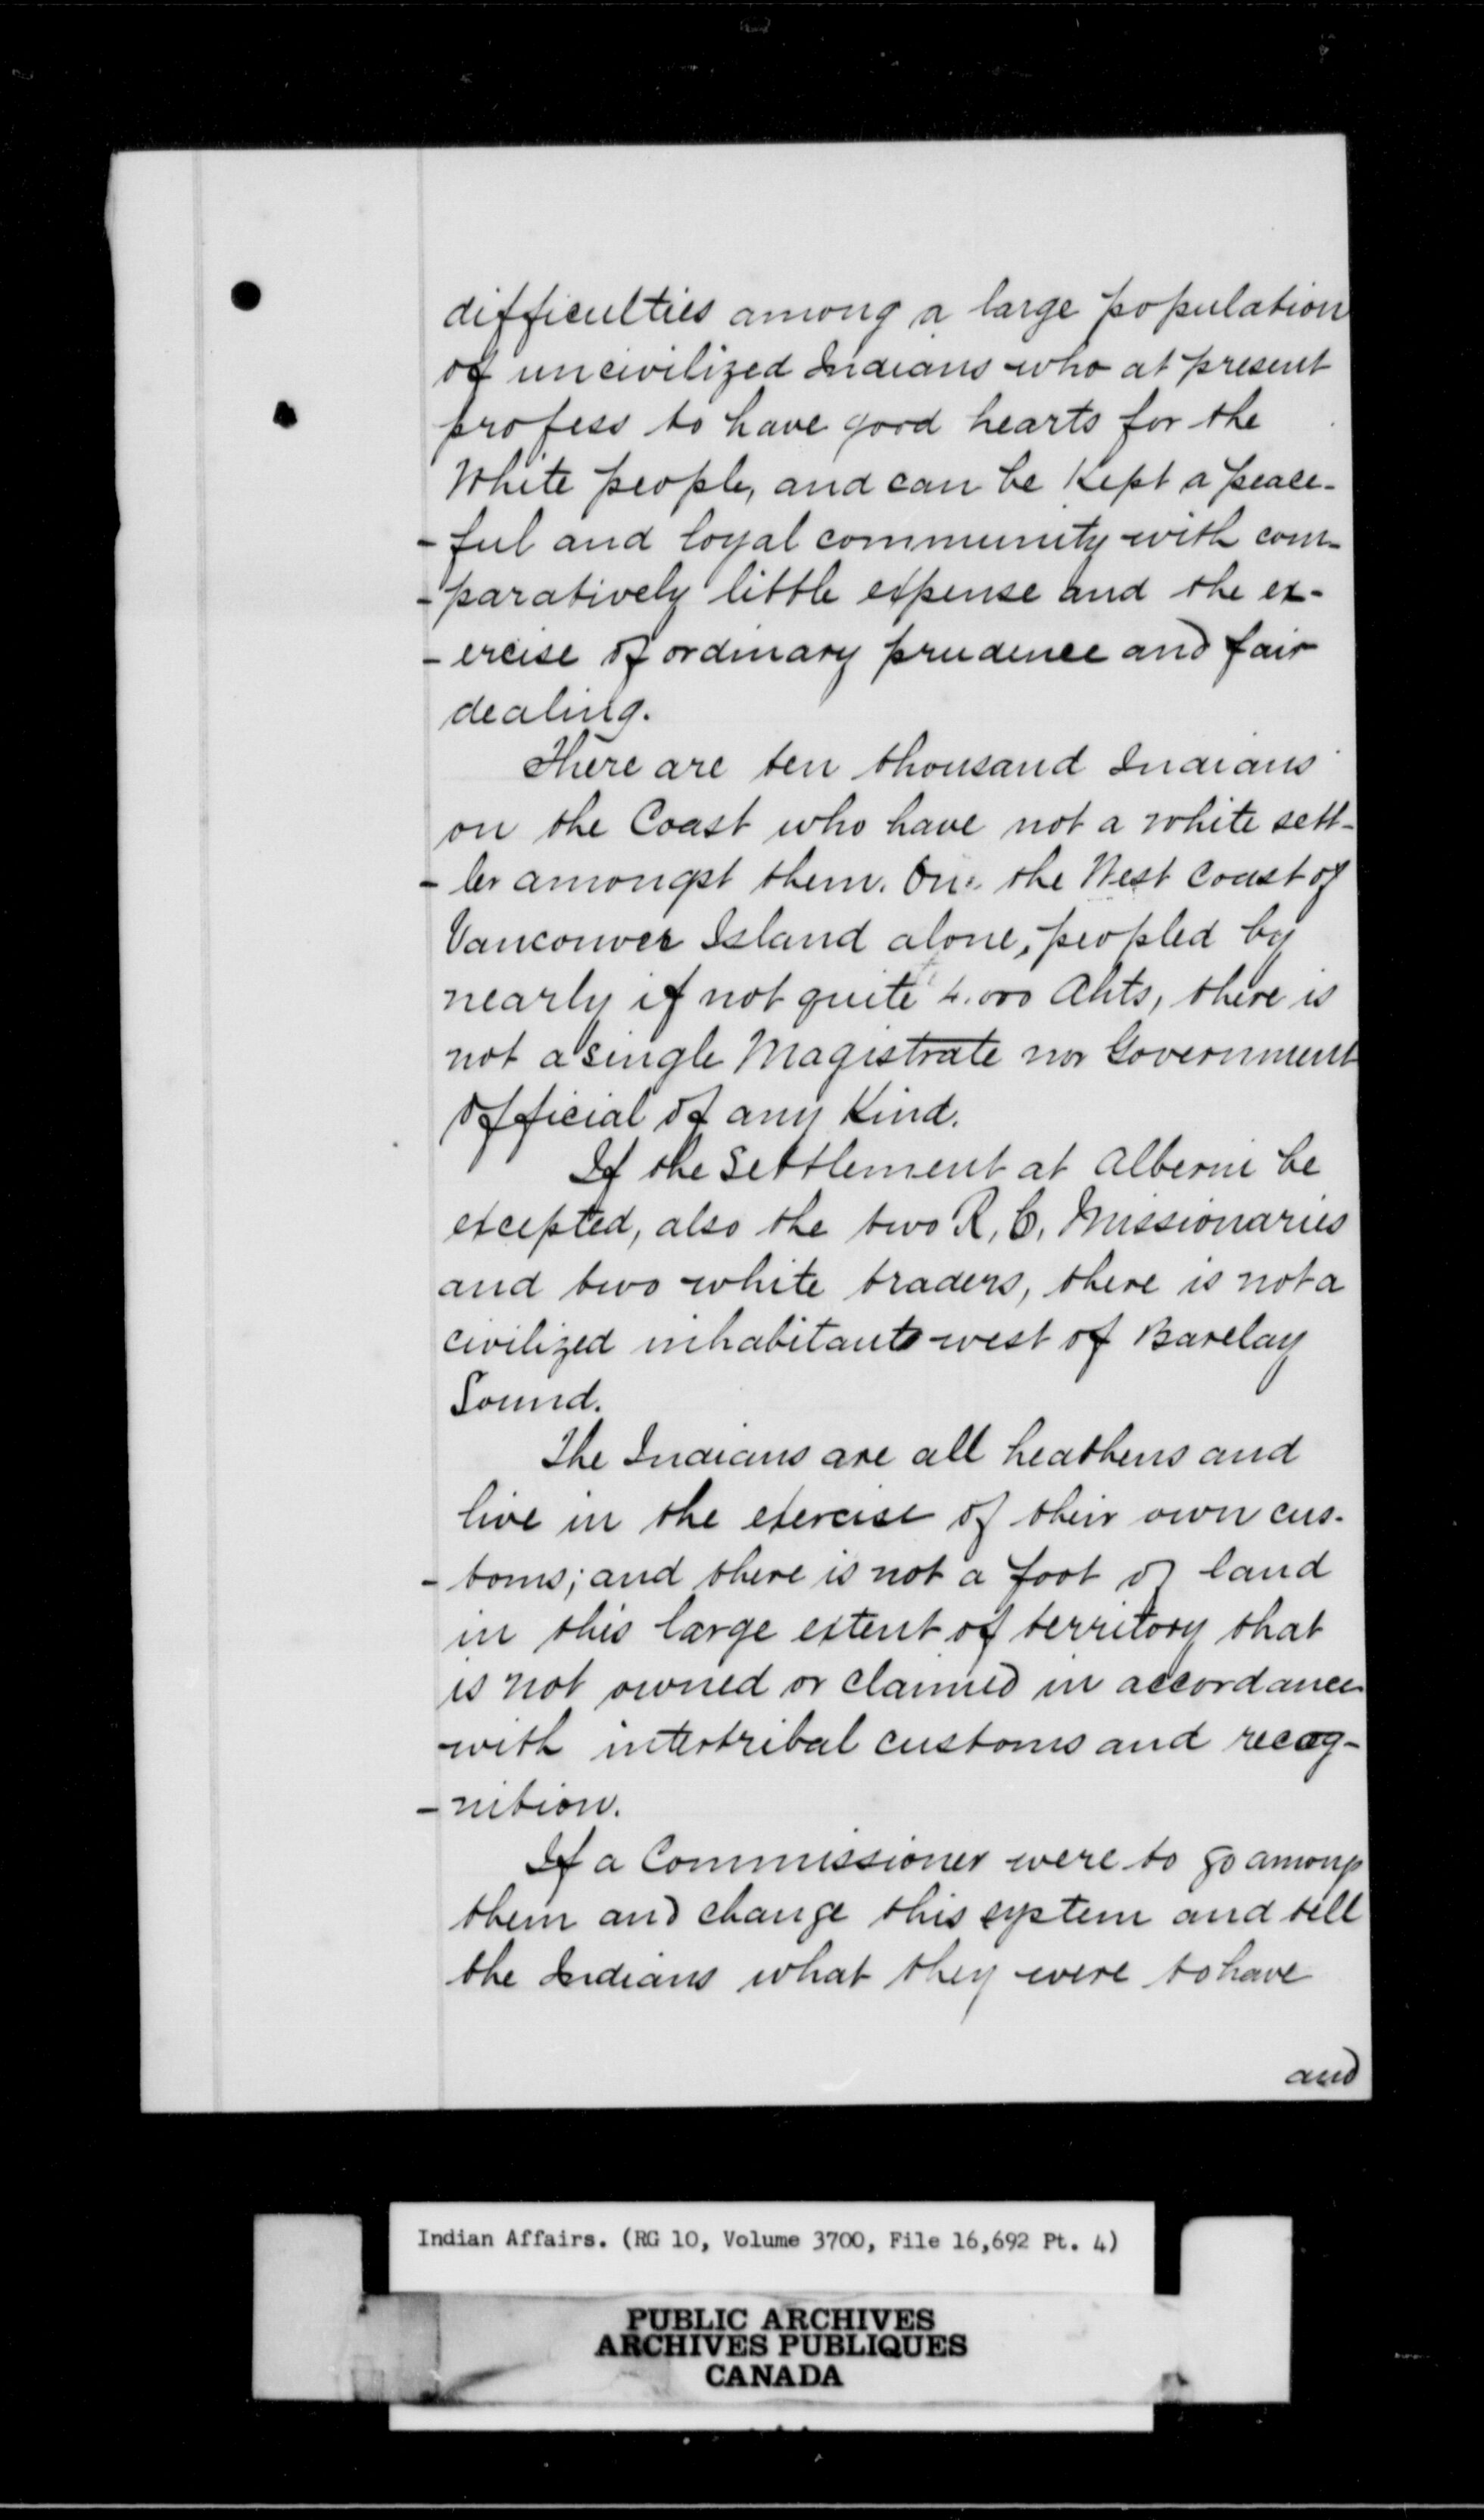 difficulties among a large population
of uncivilized Indians who at present
profess to have good hearts for the
White people, and can be Kept a peace-
-ful and loyal community with com-
-paratively little expense and the ex-
-ercise of ordinary prudence and fair
dealing.
There are ten thousand Indians
on the Coast who have not a white sett-
-ler amongst them. On the West Coast of
Vancouver Island alone, peopled by
nearly if not quite 4.000 Ahts, there is
not a single Magistrate nor Government
official of any Kind.
If the Settlement at Alberni be
excepted, also the two R. C. Missionaries
and two white traders, there is not a
civilized inhabitant west of Barclay
Sound.
The Indians are all heathens and
live in the exercise of their own cus-
-toms; and there is not a foot of land
in this large extent of territory that
is not owned or claimed in accordance
with intertribal customs and recog-
-nition.
If a Commissioner were to go among
them and change this system and tell
the Indians what they were to have
and
Indian Affairs. (RG 10, Volume 3700, File 16,692 Pt. 4)
PUBLIC ARCHIVES
ARCHIVES PUBLIQUES
CANADA